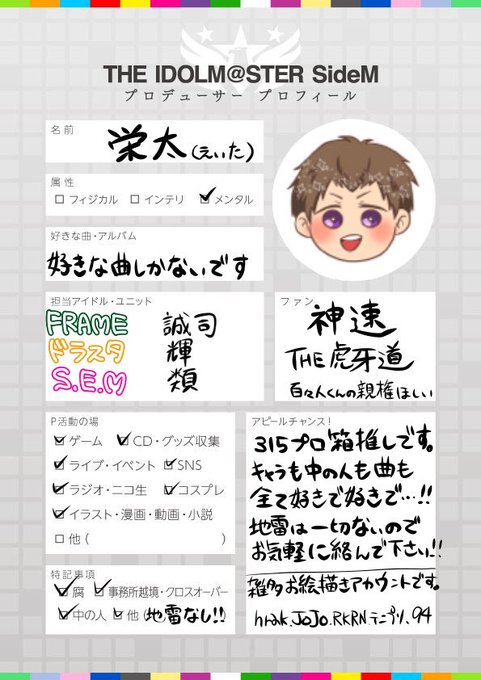 THE IDOLM@STER SideM
プロデューサー プロフィール
名前
栄太(えいた)
属性
□フィジカル □インテリ ☑メンタル
好きな曲・アルバム
好きな曲しかないです
担当アイドル・ユニット
FRAME 誠司
ドラスタ 輝
S.E.M 類
ファン
神速
THE虎牙道
百々人くんの親権ほしい
P活動の場
☑ゲーム ☑CD・グッズ収集
☑ライブ・イベント ☑SNS
☑ラジオ・ニコ生 ☑コスプレ
☑イラスト・漫画・動画・小説
□他( )
特記事項
☑腐 ☑事務所越境・クロスオーバー
☑中の人 ☑他(地雷なし!!)
アピールチャンス!
315プロ箱推しです。
キャラも中の人も曲も
全て好きで好きで…!!
地雷は一切ないので
お気軽に絡んで下さい!!
雑多お絵描きアカウントです。
hrak.JoJo.RKRN テニプリ.94